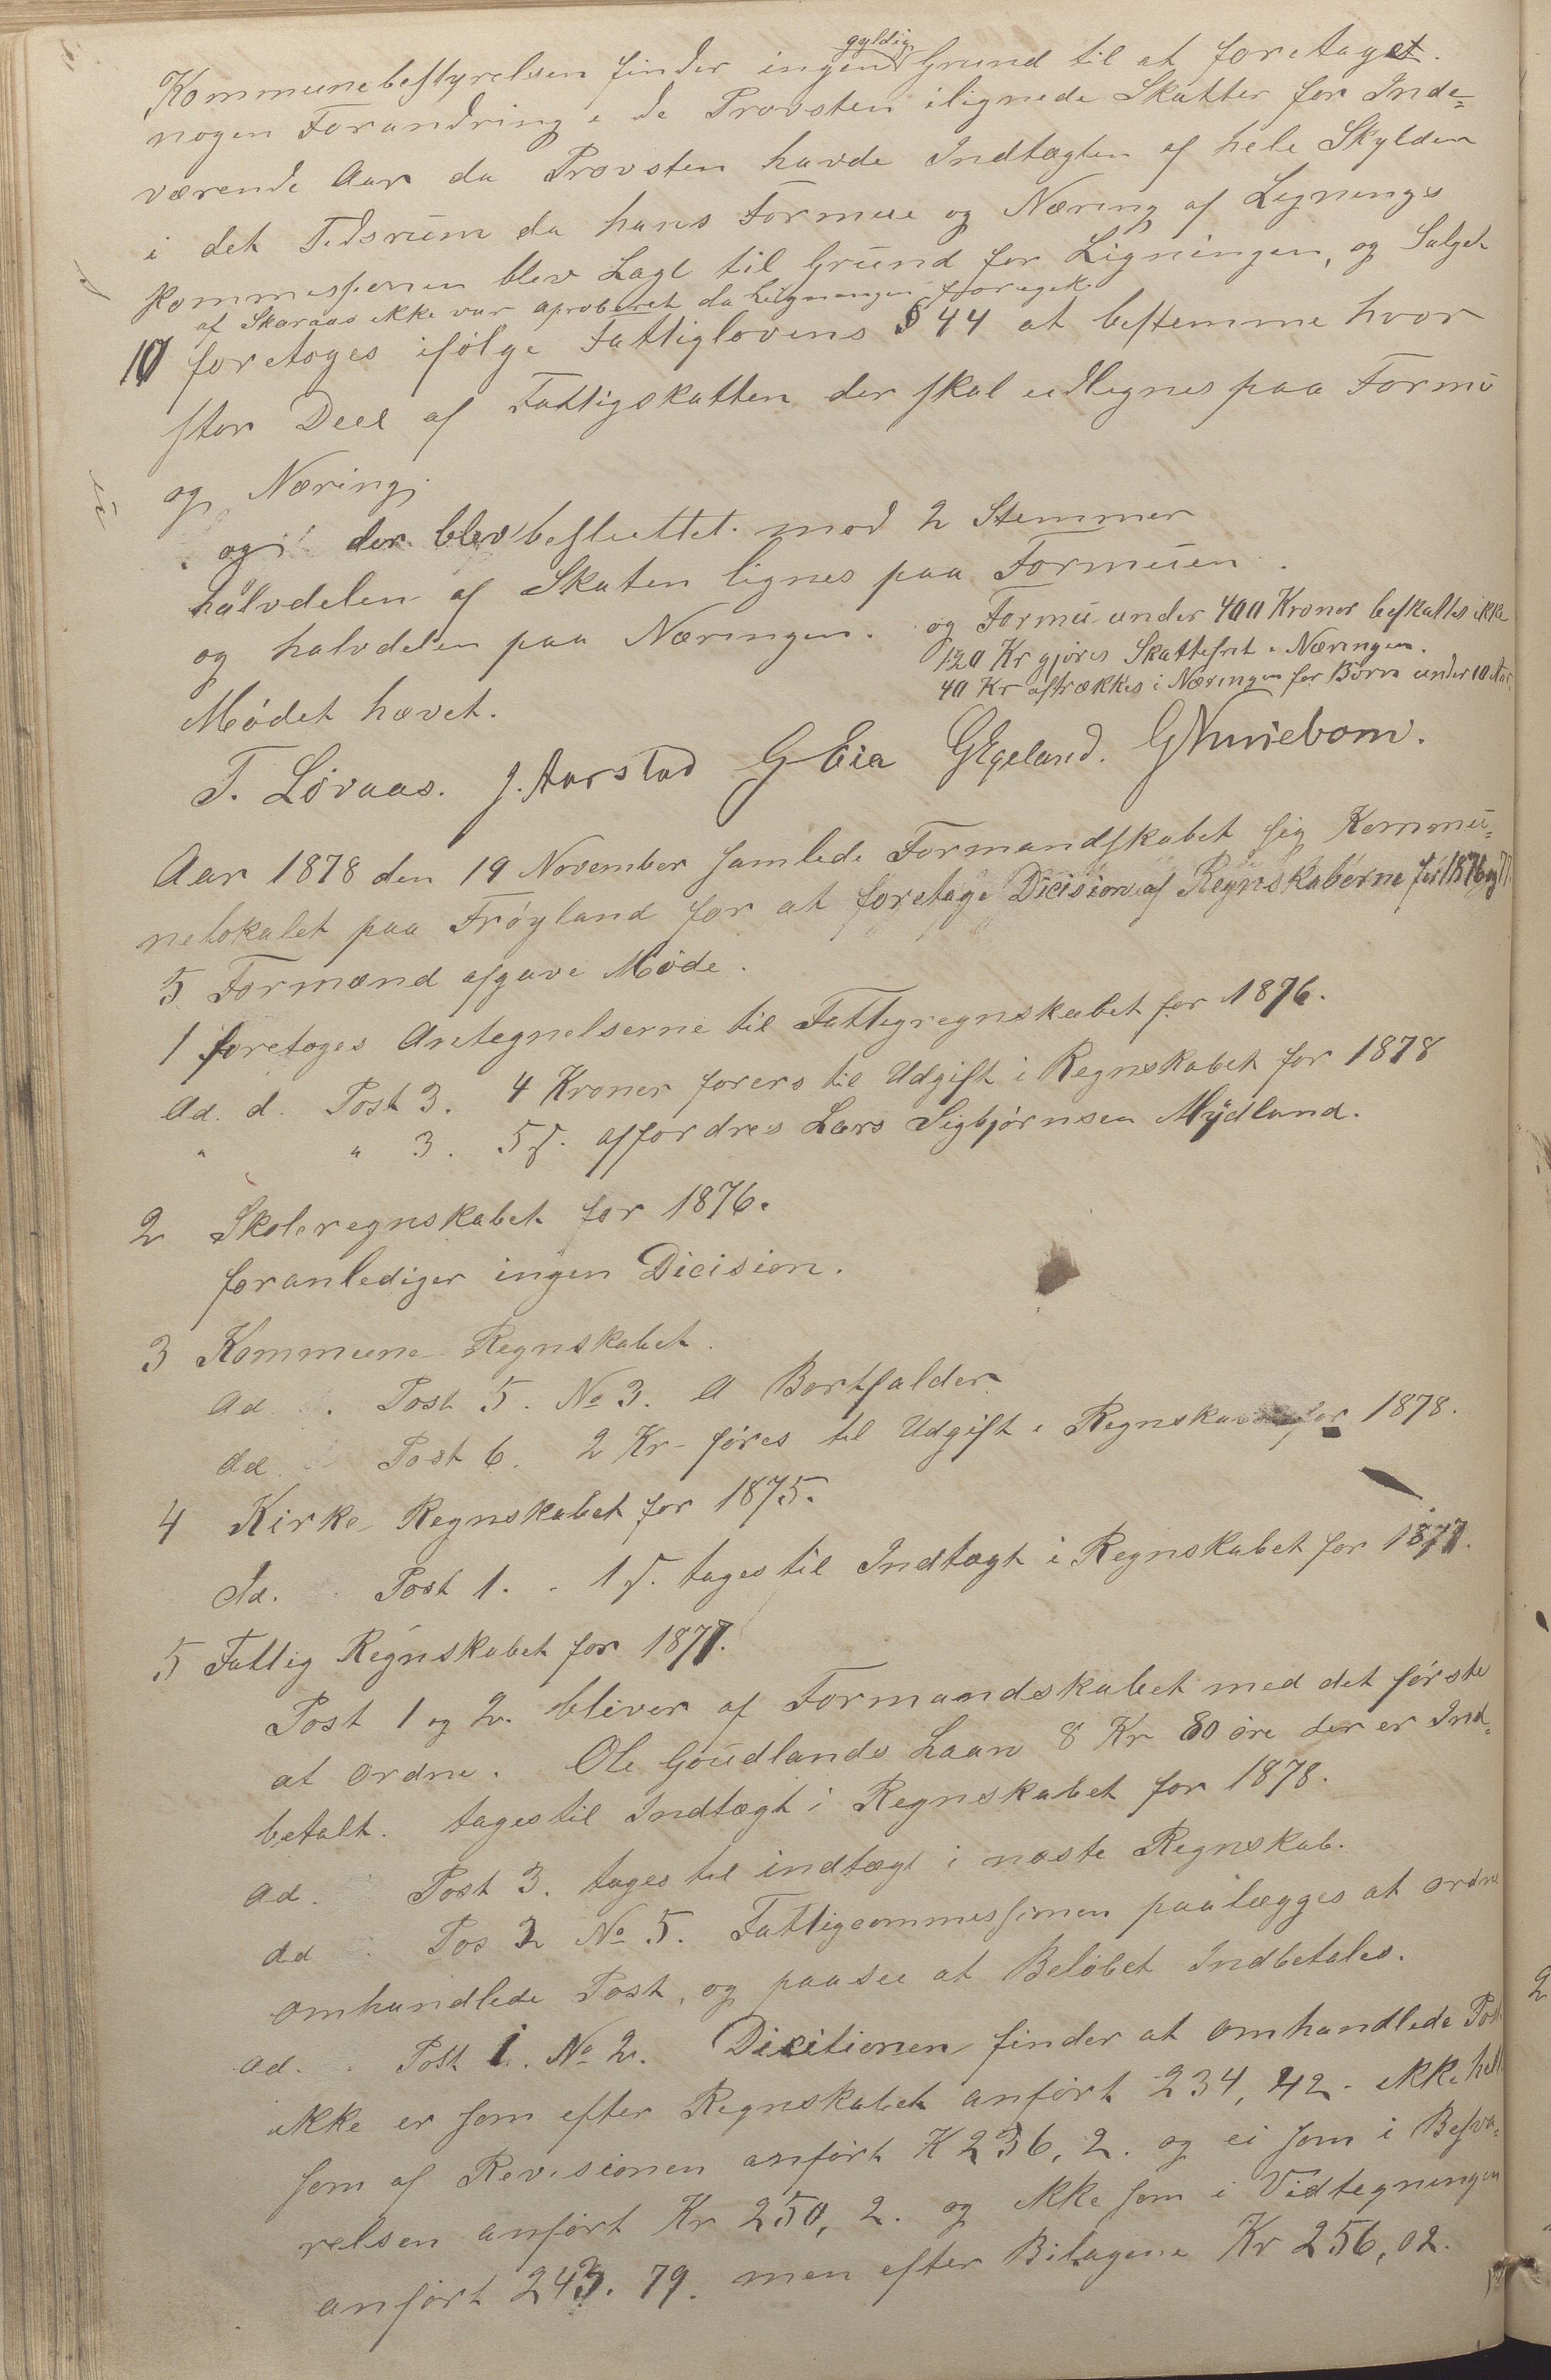 Kommunebestyrelsen finder ingen gyldig Grund til at foretaget.
nogen Forandring i de Provsten ilignede Skatter for Inde-
værende Aar da Provsten havde Indtægten af hele Skylden
i det Tidsrum da hans Formue og Næring af Lignings
kommissjonen blev Lagt til Grund for Ligningen, og Salget
af Skaraas ikke var aproberet da Ligningen foregik.
10 foretoges ifølge Fattiglovens § 44 at bestemme hvor
stor Deel af Fattigskatten der skal udlignes paa Formu
og Næring.
og der blev besluttet mod 2 Stemmer
halvdelen af Skaten lignes paa Formuen
og halvdelen paa Næringen. og Formu under 400 Kroner beskattes ikke
120 Kr gjøres Skattefrit i Næringen.
40 Kr aftrækkes i Næringen for Børn under 10 Aar
Mødet hævet.
T. Lövaas. J. Aarstad G Eia GEgeland.
Aar 1878 den 19 November samlede Formandskabet sig Kommu-
nelokalet paa Frøyland for at foretage Dicision af Regnskaberne for 1876 og 77
5 Formænd afgave Møde.
1 foretoges Antegnelserne til Fattigregnskabet for 1876.
Ad. d. Post 3. 4 Kroner førers til Udgift i Regnskabet for 1878
" " 3. 5 affordres Lars Sigbjørnsen Mydland.
2 Skoleregnskabet for 1876.
foranlediger ingen Dicision.
3 Kommune Regnskabet.
Ad. Post 5. No 3. a Bortfalder
Ad. Post 6. 2 Kr føres til Udgift i Regnskabet for 1878.
4 Kirke Regnskabet for 1875.
Ad. Post 1. 1 tages til Indtægt i Regnskabet for 1877.
5 Fattig Regnskabet for 1877.
Post 1 og 2. bliver af Formandskabet med det første
at ordne. Ole Goudlands Laan 8 Kr 80 øre der er Ind-
betalt. tages til Indtægt i Regnskabet for 1878.
Ad. Post 3. tages til indtægt i næste Regnskab.
Ad Pos 2 No 5. Fattigcommissionen paalægges at ordne
omhandlede Post, og paasee at Beløbet Indbetales.
Ad. Post 1. No 2. Dicitionen finder at omhandlede Post
ikke er som efter Regnskabet anført 234,42 - ikke hell
som af Revisionen anført K 236,2. og ei som i Besva-
relsen anført Kr 250,2. og ikke som i Vidtegningen
anført 243.79. men efter Bilagene Kr 256,02.